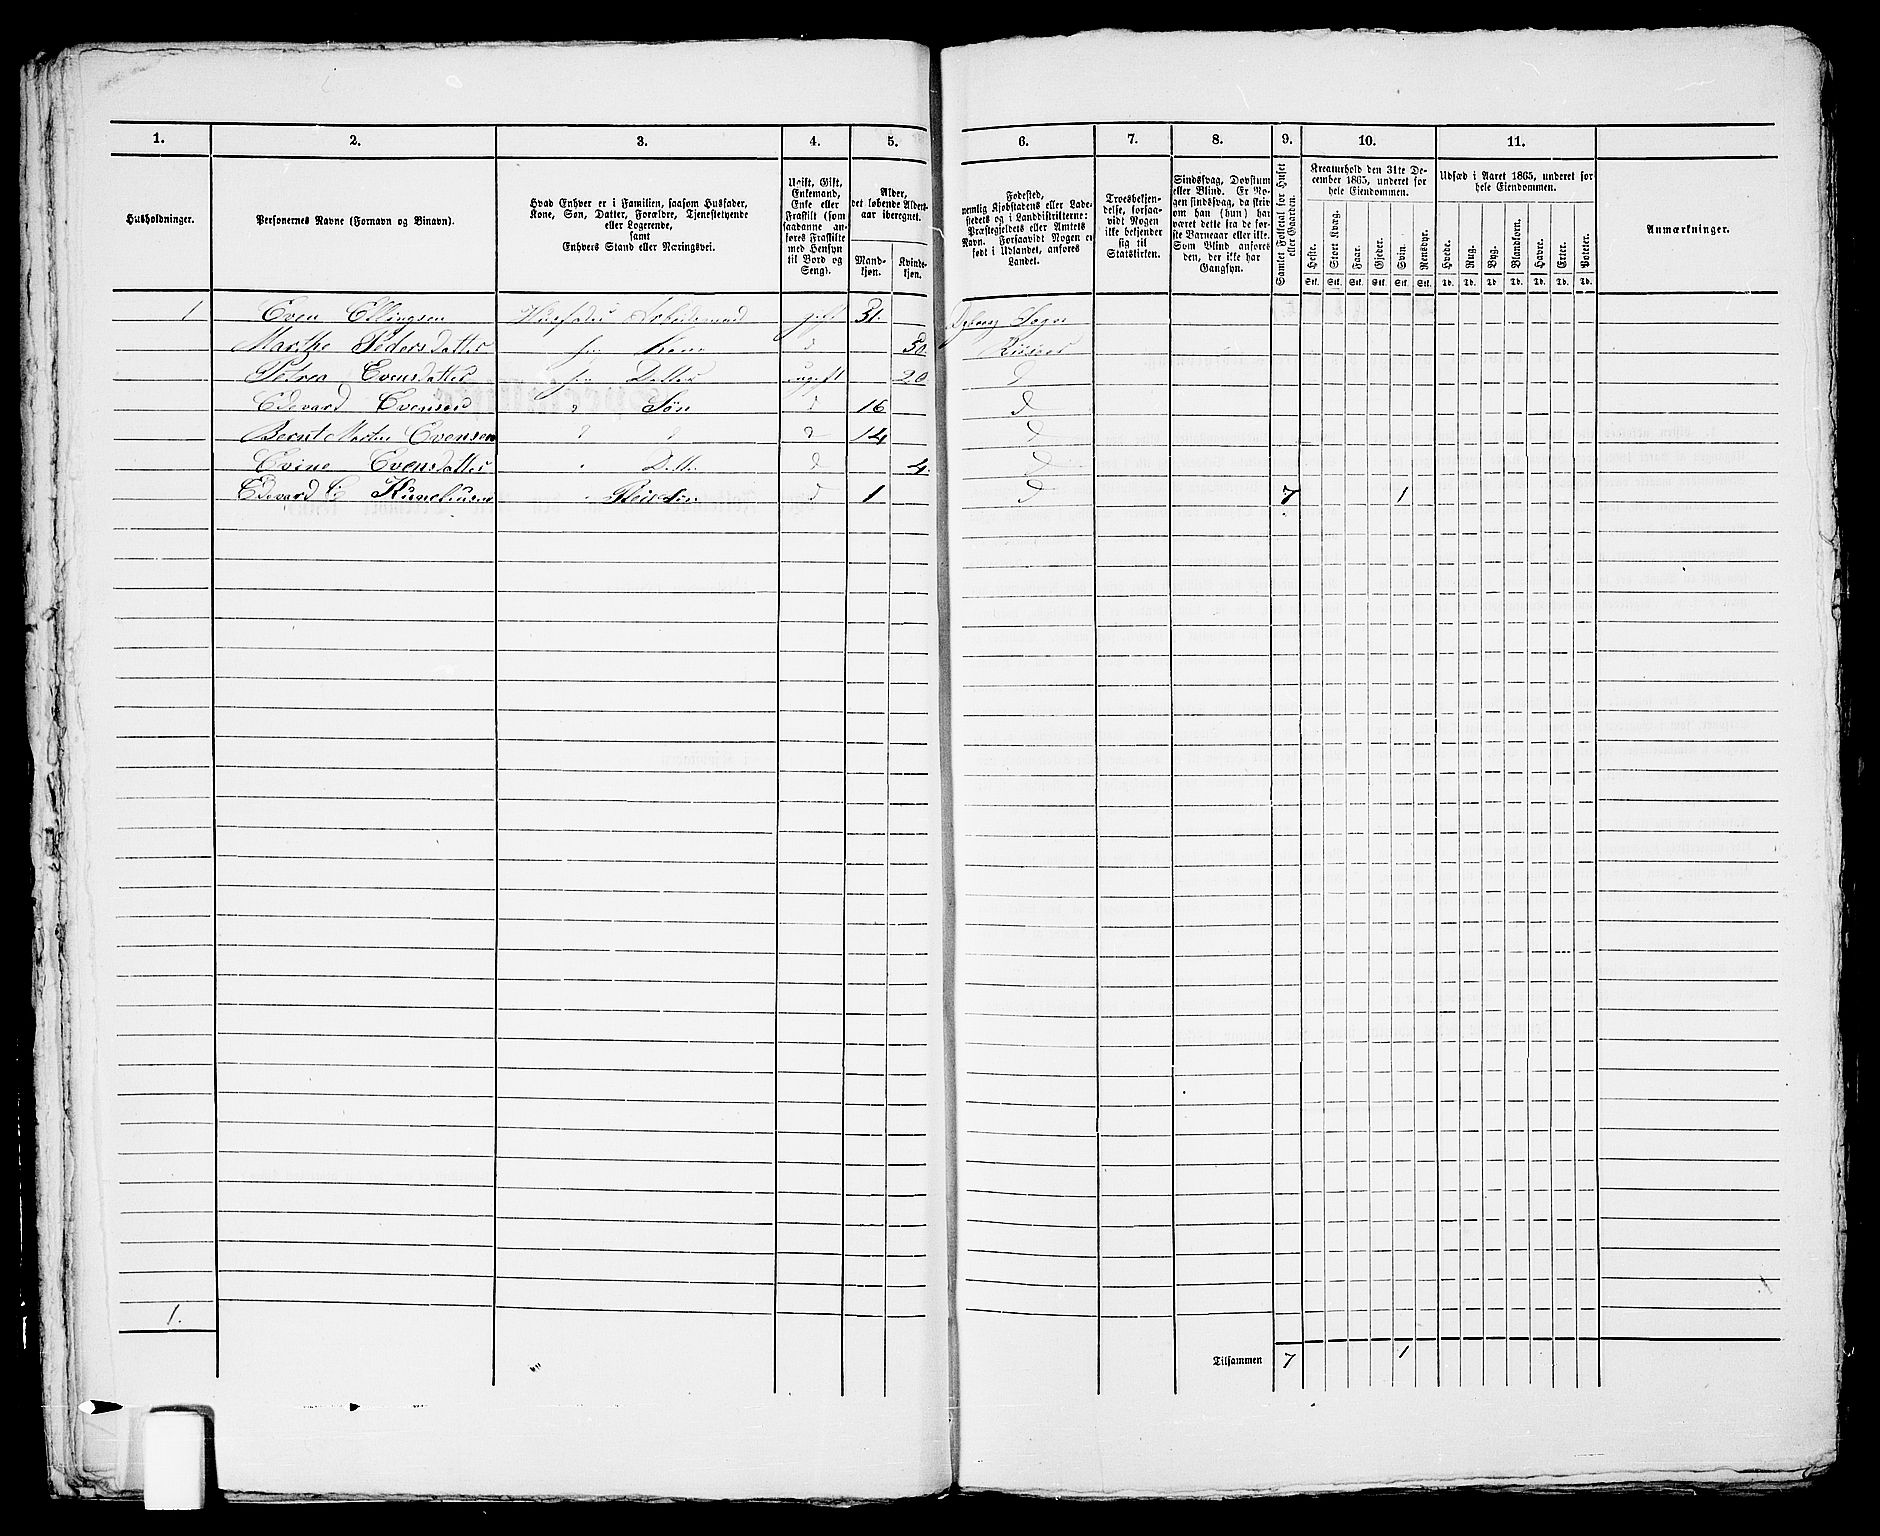 1. 2. 3. 4. 5. 6. 7. 8. 9. 10. 11.
Husholdninger.
Personernes Navne (Fornavn og Binavn).
Hvad Enhver er i Familien, saasom Husfader,
Kone, Søn, Datter, Forældre, Tjenestetyende
eller Logerende,
samt
Enhvers Stand eller Næringsvei.
Ugift, Gift,
Enkemand,
Enke eller
Fraskilt (som
saadanne an-
føres Fraskilte
med Hensyn
til Bord og
Seng).
Alder,
det løbende Alders-
aar iberegnet.
Mand-
kjøn.
Kvinde-
kjøn.
Fødested,
nemlig Kjøbstadens eller Lade-
stedets og i Landdistrikterne:
Præstegjeldets eller Amtets
Navn. Forsaavidt Nogen er
født i Udlandet, anføres
Landet.
Troesbekjen-
delse, forsaa-
vidt Nogen
ikke bekjender
sig til
Statskirken.
Sindssvag, Døvstum
eller Blind. Er No-
gen sindssvag, da skriv
om han (hun) har
været dette fra de før-
ste Barneaar eller ikke.
Som Blind anføres
den, der ikke har
Gangsyn.
Samlet Folketal for Huset
eller Gaarden.
Kreaturhold den 31te De-
cember 1865, underet for
hele Eiendommen.
Heste. Stort Kvæg. Faar. Gjeder. Svin. Rensdyr.
Stk. Stk. Stk. Stk. Stk. Stk.
Udsæd i Aaret 1865, underet for
hele Eiendommen.
Hvede. Rug. Byg. Blandkorn. Havre. Erter. Poteter.
Td. Td. Td. Td. Td. Td. Td.
Anmærkninger.
1 Even Ellingsen Husfader Arbeidsmand gift 51. Sogn
Marthe Pedersdatter hs Kone d 50. Risøer
Petrea Evensdatter hs Datter ugift 20 d
Edevard Evensen " Søn d 16 d
Bernt Martin Evensen " d d 14 d
Evine Evensdatter " Datter d 4. d
Edevard C " Pleiesøn d 1 d 7 1
1.
Tilsammen 7 1